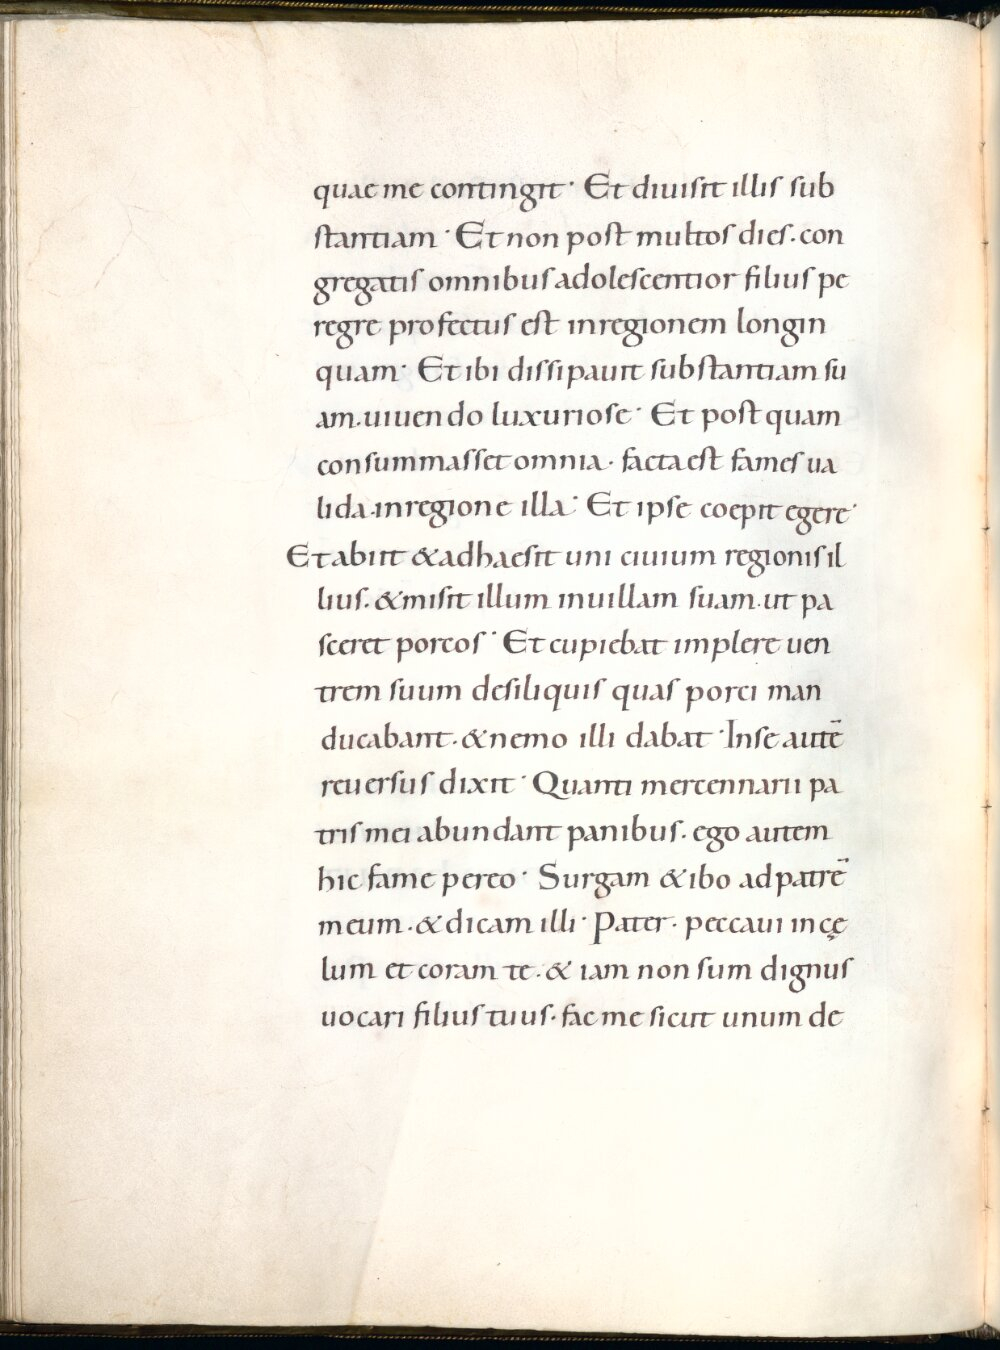 quae me contingit· Et diuisit illis sub
stantiam· Et non post multos dies· con
gregatis omnibus adolescentior filius pe
regre profectus est in regionem longin
quam· Et ibi dissipauit substantiam su
am· uiuendo luxuriose· Et postquam
consummasset omnia· facta est fames ua
lida· in regione illa· Et ipse coepit egere·
Et abiit & adhaesit uni ciuium regionis il
lius· & misit illum in uillam suam· ut pa
sceret porcos· Et cupiebat implere uen
trem suum de siliquis quas porci man
ducabant· & nemo illi dabat· In se autē
reuersus dixit· Quanti mercennarii pa
tris mei abundant panibus· ego autem
hic fame pereo· Surgam & ibo ad patrē
meum· & dicam illi· Pater· peccaui in cę
lum et coram te· & iam non sum dignus
uocari filius tuus· fac me sicut unum de